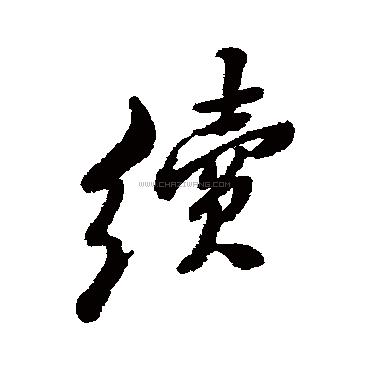 續
WWW.CHAZIWANG.COM